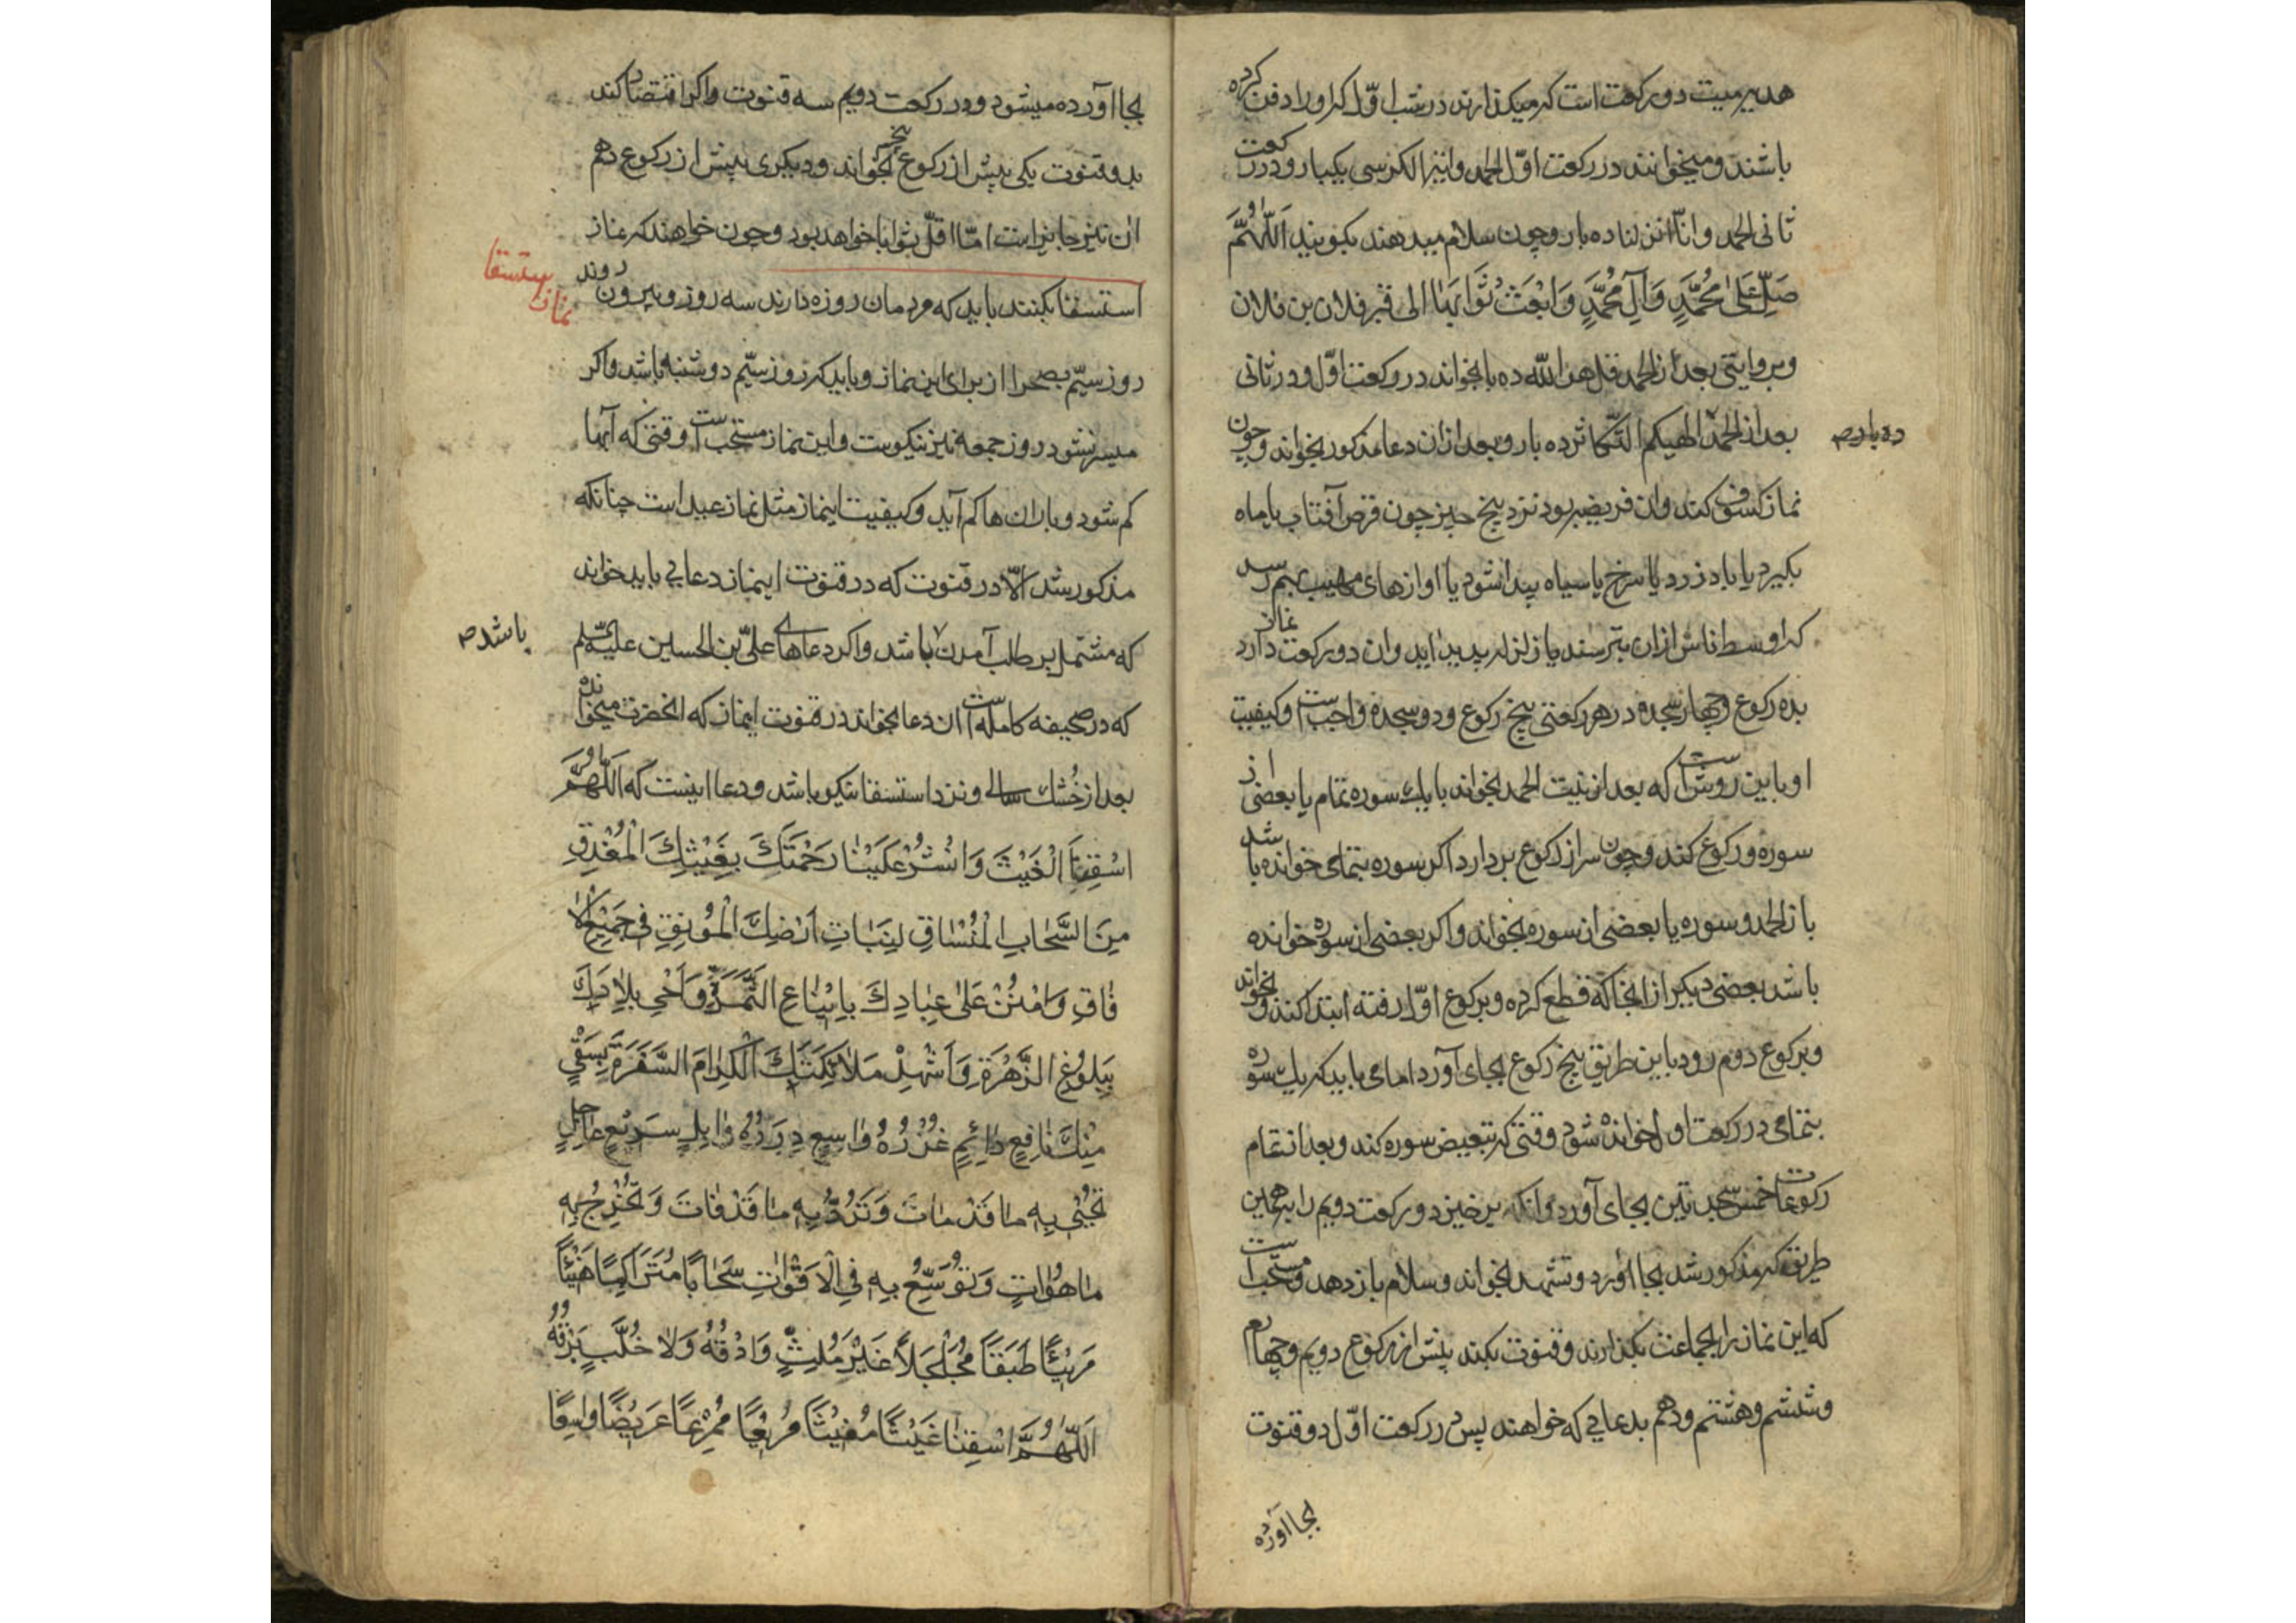 هدیه میت دو رکعت است که میکذارند در شب اوّل که او را دفن کرده
باشند و میخوانند در رکعت اوّل الحمد و ایة الکرسی یکبار و در رکعت
ثانی الحمد و انّا انزلنا ده بار و چون سلام میدهند بکویند اَللّٰهُمَّ
صَلِّ عَلیٰ مُحَمَّدٍ وَآلِ مُحَمَّدٍ وَابْعَثْ ثَوٰابَهٰا الی قبر فلان بن فلان
و بروایتی بعد از الحمد قل هو اللّه ده بار بخواند در رکعت اوّل و در ثانی
بعد از الحمد الهیکم التّکاثر ده بار و بعد از ان دعا مذکور بخواند و چون
ده بار صح
نماز کسوف کند وان فریضه بود نزد پنج چیز چون قرص آفتاب یا ماه
بکیرد یا باد زرد یا سرخ یا سیاه پیدا شود یا اوازهای مهیب بهم رسد
که اوسط ناس ازان بترسند یا زلزله پدید اید وان دو رکعت نماز دارد
بده رکوع و چهار سجده در هر رکعتی پنج رکوع و دو سجده واجب است و کیفیت
او باین روش است که بعد از نیت الحمد بخواند با یک سوره تمام یا بعضی از
سوره و رکوع کند و چون سر از رکوع بردارد اکر سوره بتمامی خوانده باشد
باز الحمد و سوره یا بعضی از سوره بخواند و اکر بعضی از سوره خوانده
باشد بعضی دیکر از انجا که قطع کرده و برکوع اوّل رفته ابتدا کند و بخواند
و برکوع دوم رود باین طریق پنج رکوع بجای آورد اما می باید که یک سوره
بتمامی در رکعت اول خوانده شود وقتی که تبعیض سوره کند و بعد از تمام
رکوعات خمس سجدتین بجای آورد وانکه برخیزد و رکعت دویم را بهمین
طریق که مذکور شد بجا اورد و تشهد بخواند و سلام باز دهد و مستحب است
که این نماز را بجماعت بکذارند و قنوت بکند پیش از رکوع دویم و چهارم
و ششم و هشتم و دهم بدعایی که خواهند پس در رکعت اوّل دو قنوت
بجا آورده
بجا آورده میشود و در رکعت دویم سه قنوت و اکر اقتصار کند
بدو قنوت یکی پیش از رکوع پنجم بخواند و دیکری پیش از رکوع دهم
ان نیز جایز است امّا اقلّ ثوابا خواهد بود و چون خواهند که نماز
نماز استسقا
استسقا بکنند باید که مردمان روزه دارند سه روز و بیرون روند
روز سیّم بصحرا از برای این نماز و باید که روز سیّم دوشنبه باشد و اکر
میسر نشود روز جمعه نیز نیکوست و این نماز مستحب است وقتی که آبها
کم شود و باران ها کم آید و کیفیت اینماز مثل نماز عید است چنانکه
مذکور شد الّا در قنوت که در قنوت اینماز دعایی باید خواند
که مشتمل بر طلب آمدن باشد و اکر دعاهای علیّ بن الحسین علیه السّلم
باشد صح
که در صحیفه کامله است ان دعا بخواند در قنوت اینماز که انحضرت میخوانده
بعد از خُشک سالی و نزد استسقا نیکو باشد و دعا اینست که اَللّٰهُمَّ
اسْقِنَا الْغَیْثَ وَانْشُرْ عَلَیْنٰا رَحْمَتَکَ بِغَیْثِکَ الْمُغْدِقِ
مِنَ السَّحٰابِ الْمُنْسٰاقِ لِنَبٰاتِ اَرْضِکَ الْمُونِقِ فی جَمیعِ الْاٰ
فٰاقِ وَامْنُنْ عَلیٰ عِبٰادِکَ بِاینٰاعِ الثَّمَرَةِ وَاَحْیِ بِلٰادَکَ
بِبُلُوغِ الزَّهَرَةِ وَاَشْهِدْ مَلٰائِکَتَکَ الْکِرٰامَ السَّفَرَةَ بِسَقْیٍ
مِنْکَ نٰافِعٍ دٰائِمٍ غُزْرُهُ وٰاسِعٍ دِرَرُهُ وٰابِلٍ سَریعٍ عٰاجِلٍ
تُحْیی بِهِ مٰا قَدْ مٰاتَ وَتَرُدُّ بِهِ مٰا قَدْ فٰاتَ وَتُخْرِجُ بِهِ
مٰا هُوَ اٰتٍ وَتُوَسِّعُ بِهِ فِی الْاَقْوٰاتِ سَحٰابًا مُتَرَاکِمًا هَنیئًا
مَریئًا طَبَقًا مُجَلْجَلًا غَیْرَ مُلِثٍّ وَدْقُهُ وَلٰا خُلَّبٍ بَرْقُهُ
اَللّٰهُمَّ اسْقِنٰا غَیْثًا مُغیثًا مَریعًا مُمْرِعًا عَریضًا وٰاسِعًا